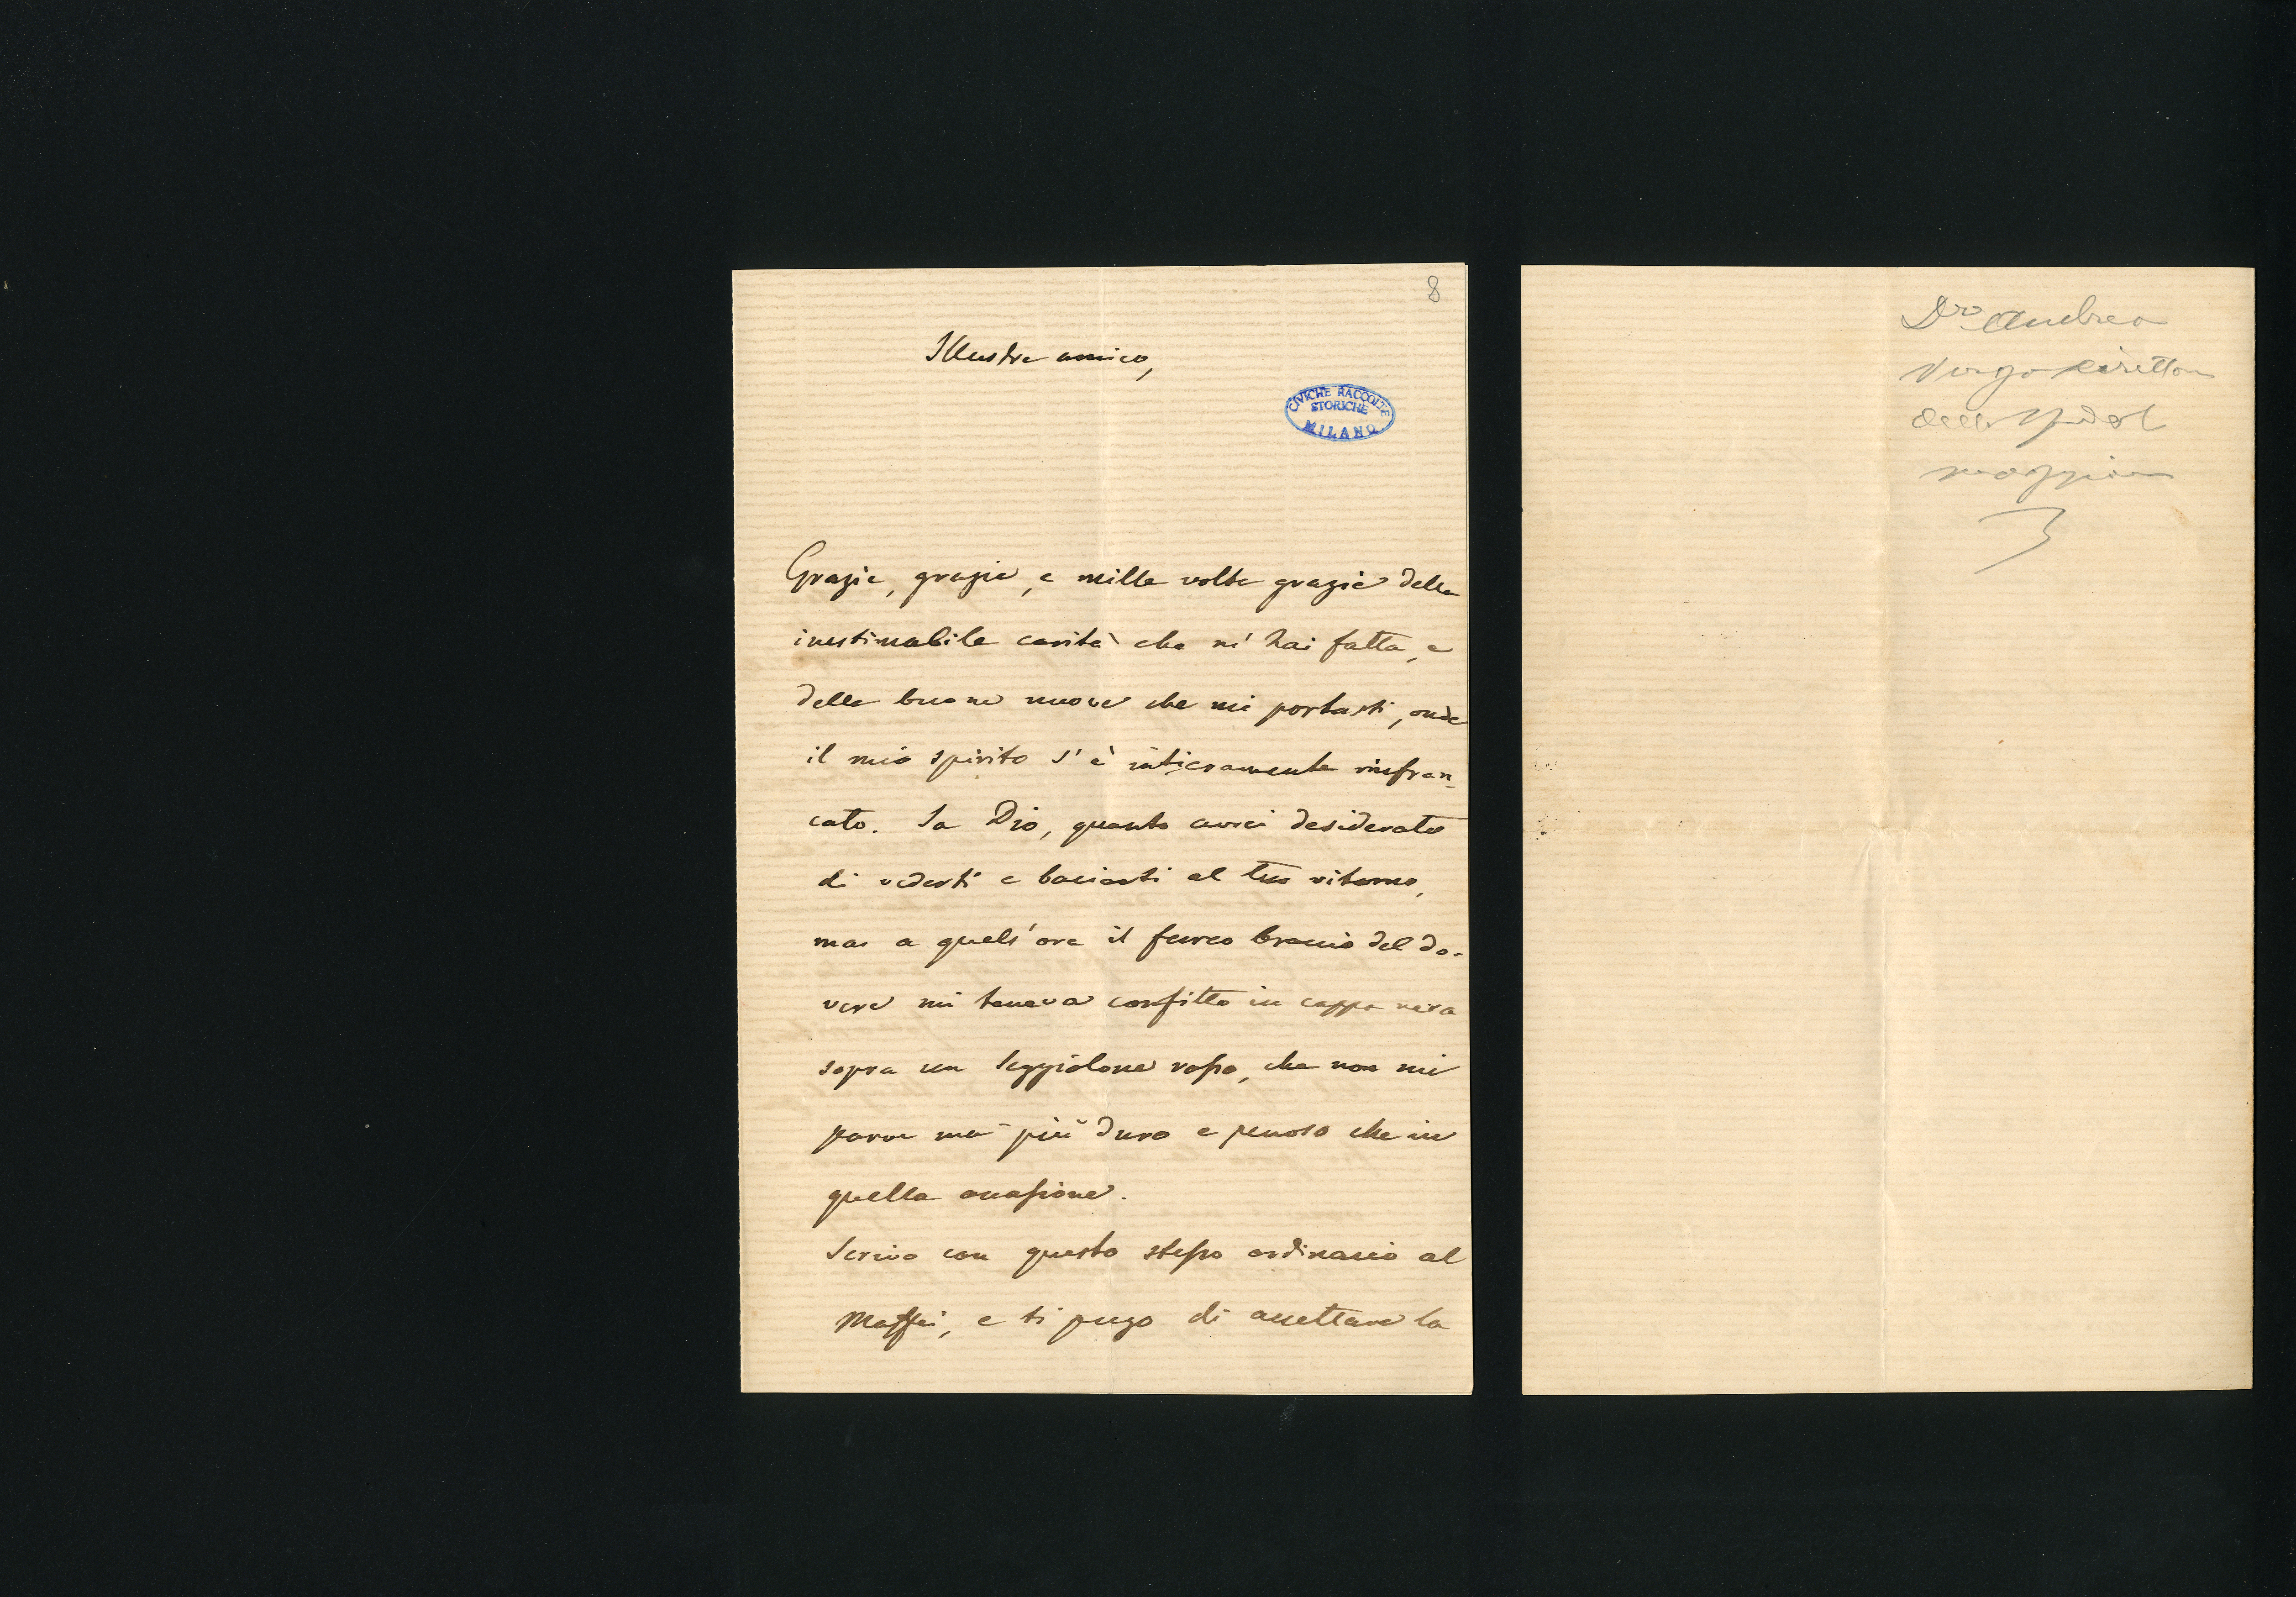 8
Illustre amico,
CIVICHE RACCOLTE
STORICHE
MILANO
Grazie, grazie, e mille volte grazie della
inestimabile carità che m' hai fatta, e
delle buone nuove che mi portasti, onde
il mio spirito s' è intieramente rinfran-
cato. Sa Dio, quanto avrei desiderato
di vederti e baciarti al tuo ritorno,
ma a quell' ora il ferreo braccio del do-
vere mi teneva confitto in cappa nera
sopra un seggiolone rosso, che non mi
parve mai più duro e penoso che in
quella occasione.
Scrivo con questo stesso ordinario al
Maffei, e ti prego di accettare la
Dr Andrea
Verga direttore
dell Spedal
maggiore